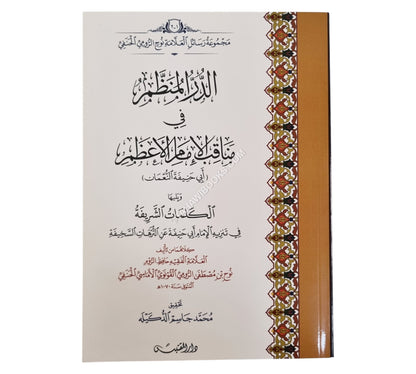 (٢٠١)
مَجْمُوعَةُ رَسَائِلِ العَلَّامَةِ نُوحِ الرُّومِيِّ الحَنَفِيِّ
الدُّرُّ المُنَظَّمُ
فِي
مَنَاقِبِ الإِمَامِ الأَعْظَمِ
(أَبِي حَنِيفَةَ النُّعْمَانِ)
وَيَلِيهَا
الكَلِمَاتُ الشَّرِيفَةُ
فِي تَنْزِيهِ الإِمَامِ أَبِي حَنِيفَةَ عَنِ التُّرَّهَاتِ السَّخِيفَةِ
كِلَاهُمَا مِنْ تَأْلِيفِ
العَلَّامَةِ الفَقِيهِ حَافِظِ الرُّومِ
نُوحِ بْنِ مُصْطَفَى الرُّومِيِّ القُونَوِيِّ الأَمَاسِيِّ الحَنَفِيِّ
المُتَوَفَّى سَنَةَ ١٠٧٠هـ
تَحْقِيقُ
مُحَمَّد جَاسِم الدُّكَيْلَه